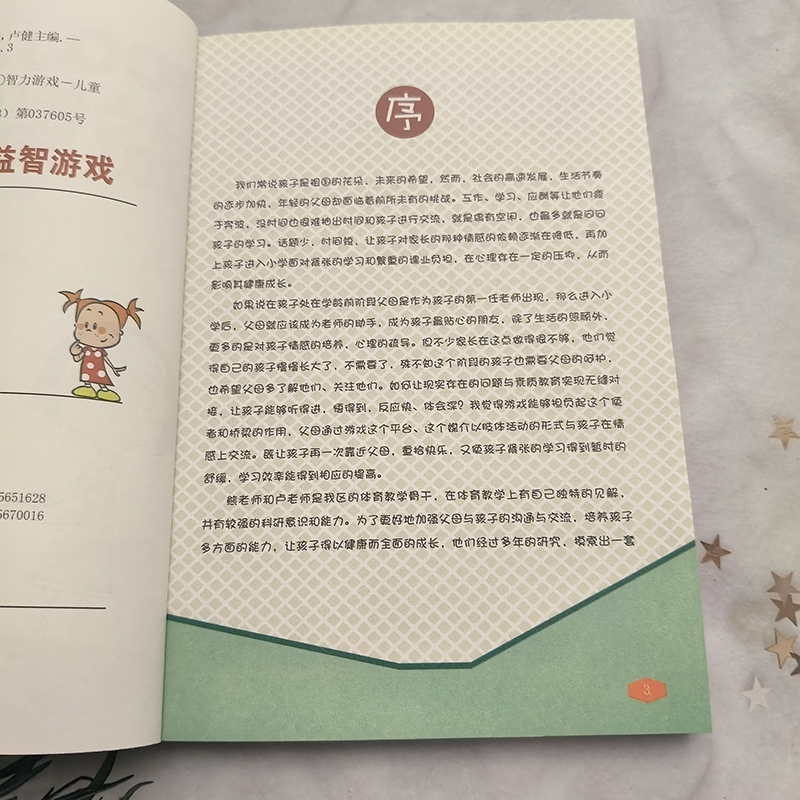 ,卢健主编.—
.3
)智力游戏－儿童
)第037605号
益智游戏
5651628
5670016
序
我们常说孩子是祖国的花朵、未来的希望,然而、社会的高速发展,生活节奏
的逐步加快,年轻的父母却面临着前所未有的挑战。工作、学习、应酬等让他们疲
于奔波、没时间也很难抽出时间和孩子进行交流,就是偶有空闲,也最多就是问问
孩子的学习。话题少,时间短、让孩子对家长的那种情感的依赖逐渐在降低,再加
上孩子进入小学面对紧张的学习和繁重的课业负担,在心理存在一定的压抑,从而
影响其健康成长。
如果说在孩子处在学龄前阶段父母是作为孩子的第一任老师出现,那么进入小
学后,父母就应该成为老师的助手,成为孩子最贴心的朋友,除了生活的照顾外,
更多的是对孩子情感的培养、心理的疏导。但不少家长在这点做得很不够,他们觉
得自己的孩子慢慢长大了,不需要了,殊不知这个阶段的孩子也需要父母的呵护,
也希望父母多了解他们、关注他们。如何让现实存在的问题与素质教育实现无缝对
接,让孩子能够听得进,懂得到,反应快、体会深?我觉得游戏能够担负起这个使
者和桥梁的作用,父母通过游戏这个平台、这个媒介以肢体活动的形式与孩子在情
感上交流。既让孩子再一次靠近父母,重拾快乐,又使孩子紧张的学习得到暂时的
舒缓,学习效率能得到相应的提高。
熊老师和卢老师是我区的体育教学骨干,在体育教学上有自己独特的见解,
并有较强的科研意识和能力。为了更好地加强父母与孩子的沟通与交流,培养孩子
多方面的能力,让孩子得以健康而全面的成长,他们经过多年的研究,摸索出一套
3